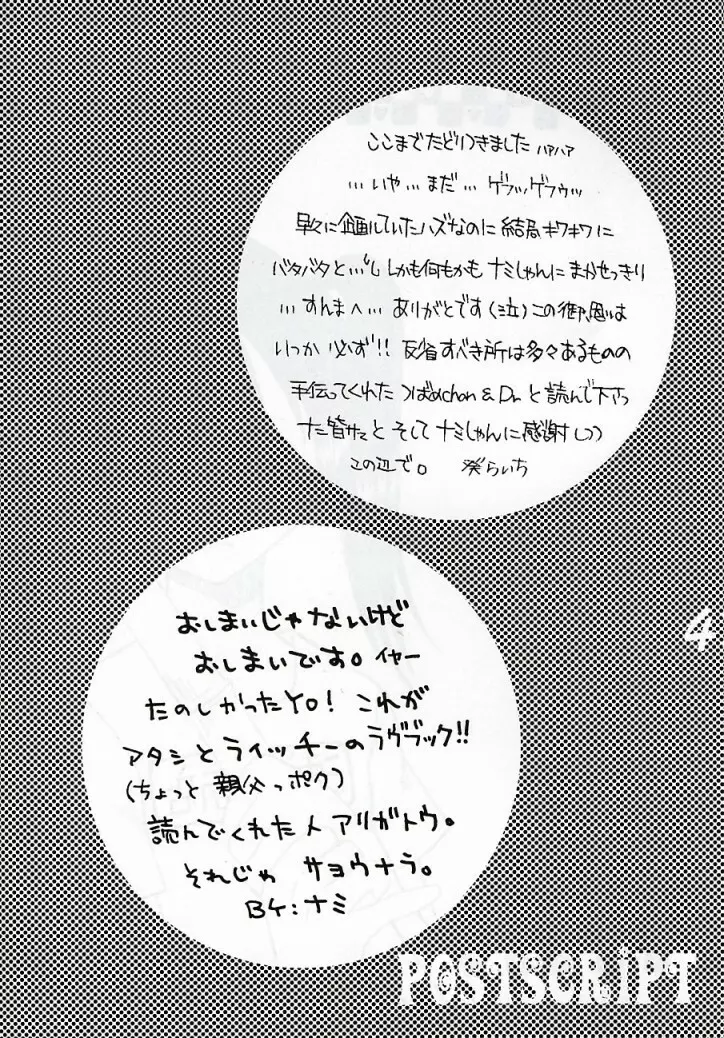 ここまでたどりつきました ハァハァ
…いや…まだ… ゲフッゲフゥッ
早々に企画していたハズなのに結局ギワギワに
バタバタと…"し しかも何もかも ナミしゃんに まかせっきり
…すんまへ… ありがとです(泣)この御恩は
いつか 必ず!! 反省すべき所は多々あるものの
手伝ってくれた つばめchan & Dr. と読んで下さっ
た皆サマと そして ナミしゃんに感謝しつつ
この辺で。 葵らいち
おしまいじゃないけど
おしまいです。イヤー
たのしかったYO! これが
アタシとライッチーのラヴブック!!
(ちょっと 親父っポク)
読んでくれた人アリガトウ。
それじゃ サヨウナラ。
BY:ナミ
4
POSTSCRiPT